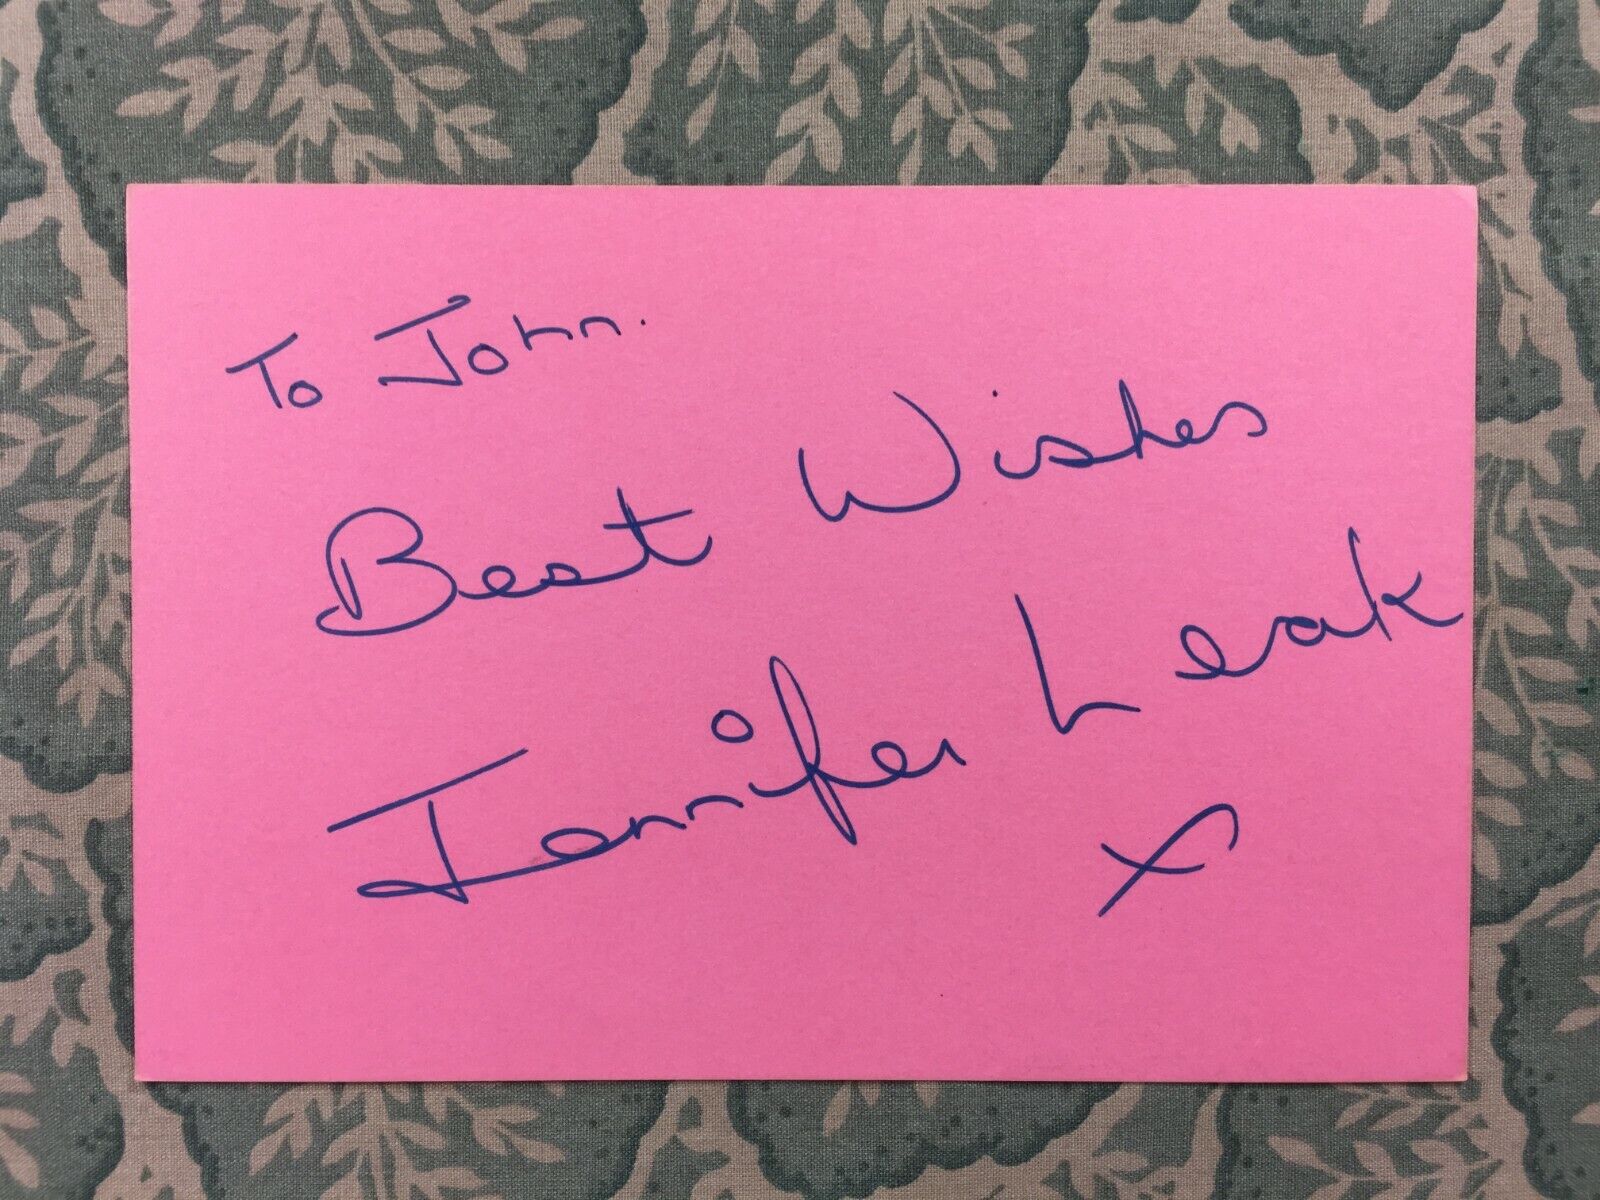 To John.
Best Wishes
Jennifer Leak
x